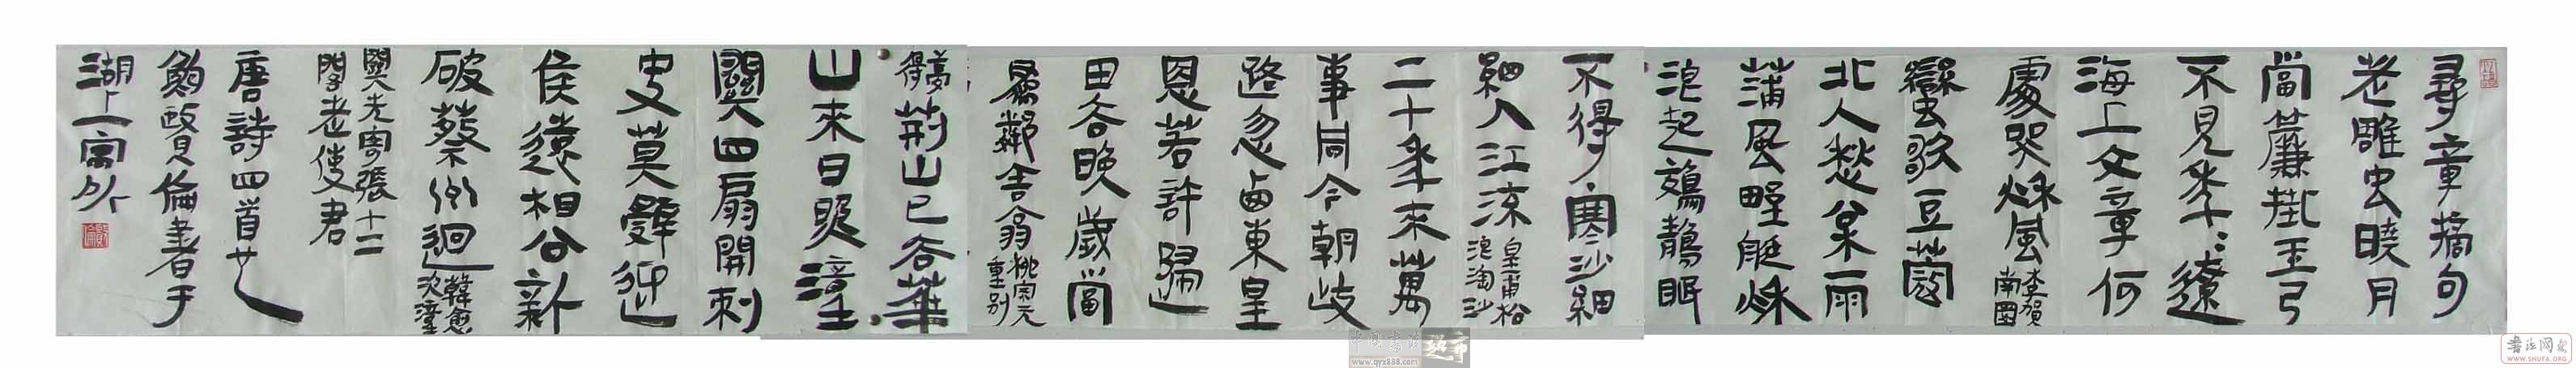 尋章摘句
老雕虫曉月
當簾掛玉弓
不見年〻遼
海上文章何
處哭秋風 李賀
南園
蠻歌豆蔻
北人愁 雨
蒲風野艇秋
浪起鵁鶄眠
不得寒沙細
細入江流 皇甫松
浪淘沙
二十年來萬
事同今朝歧
路忽西東皇
恩若許歸
田各晚歲當
為鄰舍翁 柳宗元
重別
夢得
荊山已各華
山來日照潼
關四扇開刺
史莫辭迎
侯遠相公新
破蔡州迴 韓愈
次潼
關先寄張十二
閣老使君
唐詩四首也
鮑賢倫書于
湖上寓所
www.qyz888.com
书法网
WWW.SHUFA.ORG